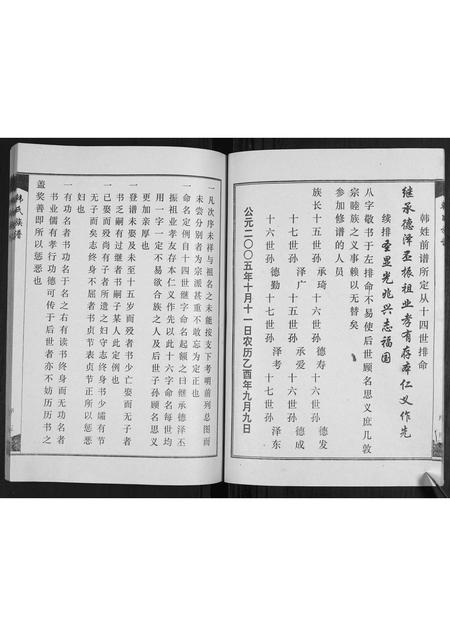 韩姓前谱所定从十四世排命
继承德泽丕振祖业孝有存本仁义作先
续排圣显光兆兴志福国
八字敬书于左排命不易使后世顾名思义庶几敦
宗睦族之义事赖以无替矣
参加修谱的人员
族长 十五世孙 承琦 十六世孙 德寿 十六世孙 德发
十五世孙 泽广 十六世孙 承爱 十六世孙 德成
十六世孙 德勤 十七世孙 泽考 十七世孙 泽东
公元二00五年十月十一日农历乙酉年九月九日
一凡次序未祥与祖名之未能按支下考明前列总图而
未尝分别者为宗派甚重不敢忘为定正也
一命名定例自十四世继字命名起额之曰继承德泽丕
振祖业孝友存本仁义作先以此十六字命名每世均
用一字一定不易欲合族之人及后世子孙顾名思义
更加亲厚也
一登谱未娶及未至十五岁而殁者书少亡娶而无子者
书乏嗣有过继者书嗣子某人此定例也
一已娶而殁尚有子者所遗之妇守志终身书少孀有节
无子而矣志终身不屈者书贞节表贞节正所以愿
妇也
一有功名者书功名于名之右有读书终身而无功名者
书业儒有孝行功德可传于后世者亦不妨历历书之
盖奖善即所以惩恶也
韩氏族谱